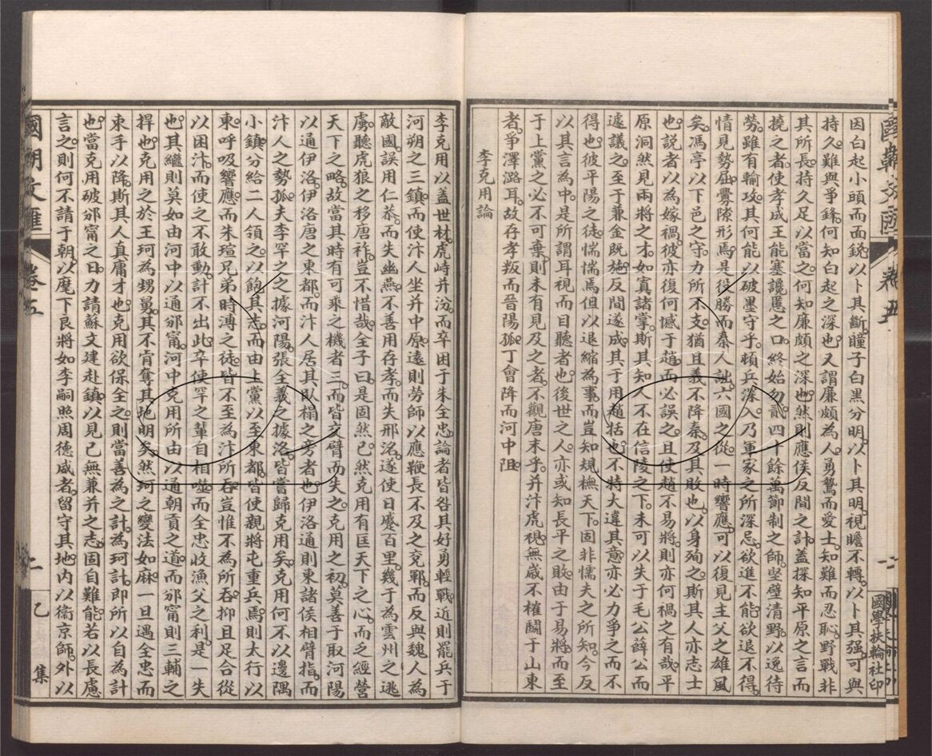 國朝文匯 卷五 一 國學扶輪社印
因白起小頭而面銳以卜其斷瞳子白黑分明以卜其明視瞻不轉以卜其强可與
持久難與爭鋒何知白起之深也又謂廉頗為人勇鷙而愛士知難而忍恥野戰非
其所長持久足以當之何知廉頗之深也然則應侯反間之計蓋探知平原之言而
撓之者使孝成王能塞讒慝之口終始勿貳四十餘萬節制之師堅壁清野以逸待
勞雖有輸攻其何能以破墨守乎頓兵深入乃軍家之所深忌欲進不能欲退不得
情見勢屈釁隙形焉是役勝而秦人詘六國之從一時響應可以復見主父之雄風
矣馮亭以下邑之守力所不支猶且義不降秦及其敗也以身殉之斯其人亦志士
也說者以為嫁禍彼亦復何憾于趙而必誤之且使趙不易將則亦何禍之有哉平
原洞然見兩將之才如寘諸掌斯其知人不在信陵之下未可以失于毛公薛公而
遽議之至于兼金既施反間遂成其于用趙括也不特大違其意亦必力爭之而不
得也彼平陽之徒惴惴焉但以退縮為事而豈知規橅天下固非懦夫之所知今反
以其言為中是所謂耳視而目聽者也後世之人亦或知長平之敗由于易將而至
于上黨之必不可棄則未有見及之者不觀唐末乎并汴虎視無歲不搉鬬于山東
者爭澤潞耳故存孝叛而晉陽孤丁會降而河中阻
李克用論
李克用以蓋世材虎峙并汾而卒困于朱全忠論者皆咎其好勇輕戰近則罷兵于
河朔之三鎮而使汴人坐并中原遠則勞師以應鞭長不及之兗鄆而反與魏人為
敵國誤用仁恭而失幽燕不善用存孝而失邢洺遂使日蹙百里幾于為雲州之逃
虜聽虎狼之移唐祚豈不惜哉全子曰是固然已然克用有匡天下之心而之經營
天下之略故當其時有可乘之機者三而皆交臂而失之克用之初莫善于取河陽
以通伊洛伊洛唐之東都而汴人居其臥榻之旁者也伊洛通則東諸侯相臂指而
汴人之勢孤夫李罕之之據河陽張全義之據洛皆嘗歸克用矣克用何不以邊隅
小鎮分給二人領之以飽其志而由上黨以至東都皆使觀將屯重兵焉則太行以
東呼吸響應而朱瑄兄弟時溥之徒皆不至為汴所吞豈惟不為所吞抑且足合從
以困汴而使之不敢動計不出此卒使罕之輩自相噬而全忠收漁父之利是一失
也其繼則莫如由河中以通邠甯河中克用所由以通朝貢之道而邠甯則三輔之
捍也克用之於王珂為甥舅其不肯奪其地明矣然珂之孌法如麻一旦遇全忠而
束手以降斯其人真庸才也克用欲保全之則當善為之計為珂計即所以自為計
也當克用破邠甯之日力請蘇文建赴鎮以見己無兼并之志固自難能若以長慮
言之則何不請于朝以麾下良將如李嗣照周德威者留守其地內以衞京師外以
國朝文匯 卷五 二 乙集